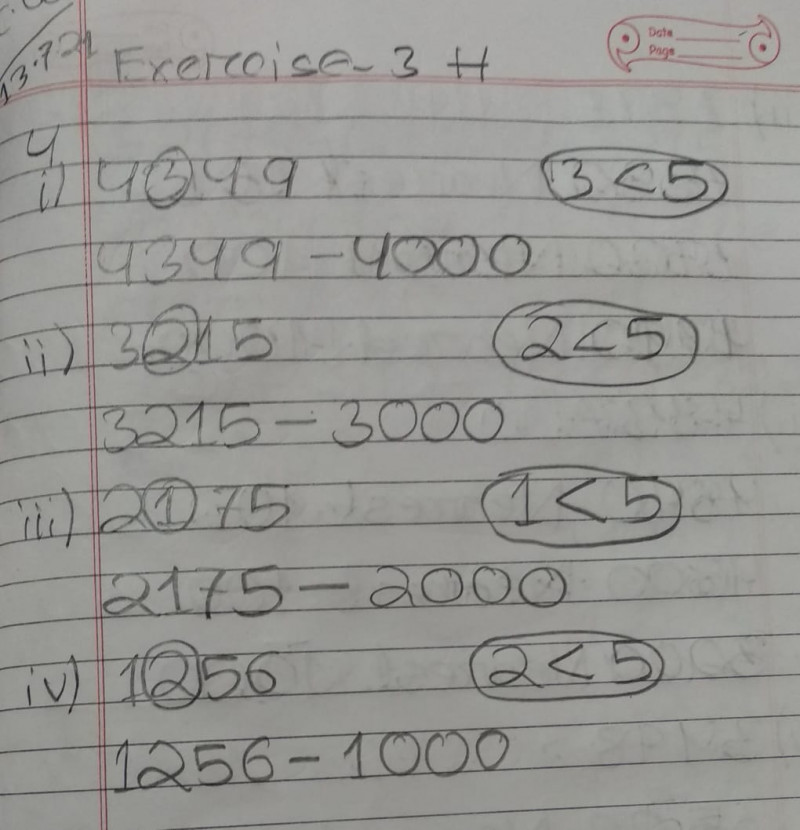 13.7.21
Exercise-3 H
Date
Page
4
i) 4349 3<5
4349-4000
ii) 3215 2<5
3215-3000
iii) 2175 1<5
2175-2000
iv) 1256 2<5
1256-1000